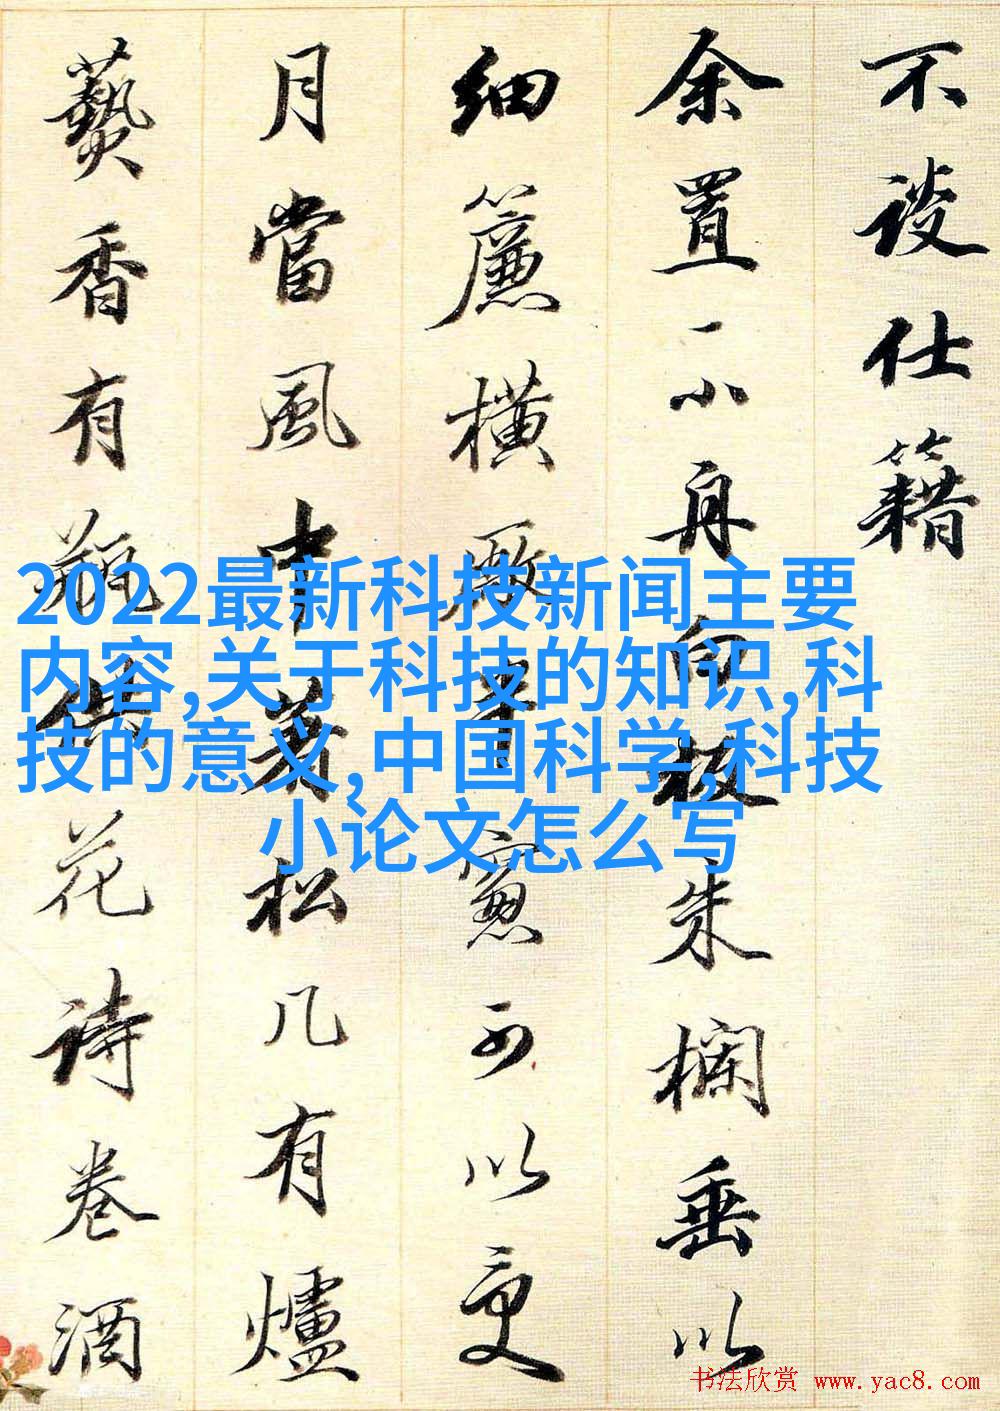 不談仕籍
余置一小舟白板朱欄垂以
細簾橫廠半窻可以受
月當風中著松几有爐
爇香有瓶供花詩卷酒
2022最新科技新闻主要
内容,关于科技的知识,科
技的意义,中国科学,科技
小论文怎么写
书法欣赏 www.yac8.com